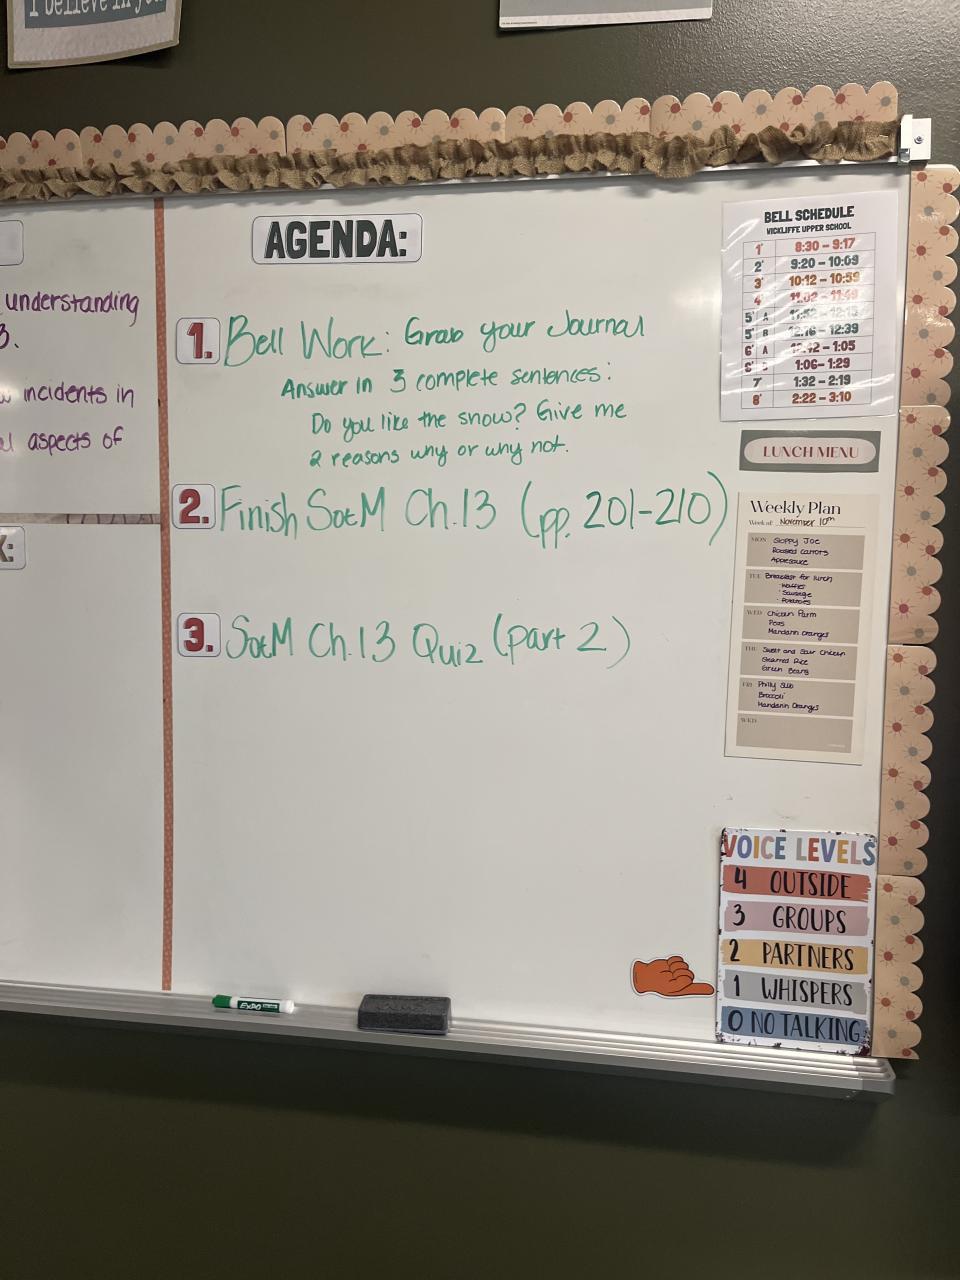 I believe in you
AGENDA:
understanding
3.
incidents in
aspects of
1. Bell Work: Grab your Journal
Answer in 3 complete sentences:
Do you like the snow? Give me
2 reasons why or why not.
2. Finish SotM Ch.13 (pp. 201-210)
3. SotM Ch.13 Quiz (part 2)
BELL SCHEDULE
VICKLIFFE UPPER SCHOOL
1' 8:30 – 9:17
2' 9:20 – 10:09
3' 10:12 – 10:59
4' 11:02 – 11:49
5' A
5' B 12:16 – 12:39
6' A 12:42 – 1:05
1:06 – 1:29
7' 1:32 – 2:19
8' 2:22 – 3:10
LUNCH MENU
Weekly Plan
Week of: November 10th
MON Sloppy Joe
Roasted Carrots
Applesauce
TUE Breakfast for lunch
· Waffles
· Sausage
· Potatoes
WED Chicken Parm
Peas
Mandarin Oranges
THU Sweet and Sour Chicken
Steamed Rice
Green Beans
FRI Philly Sub
Broccoli
Mandarin Oranges
WKD
VOICE LEVELS
4 OUTSIDE
3 GROUPS
2 PARTNERS
1 WHISPERS
0 NO TALKING
EXPO